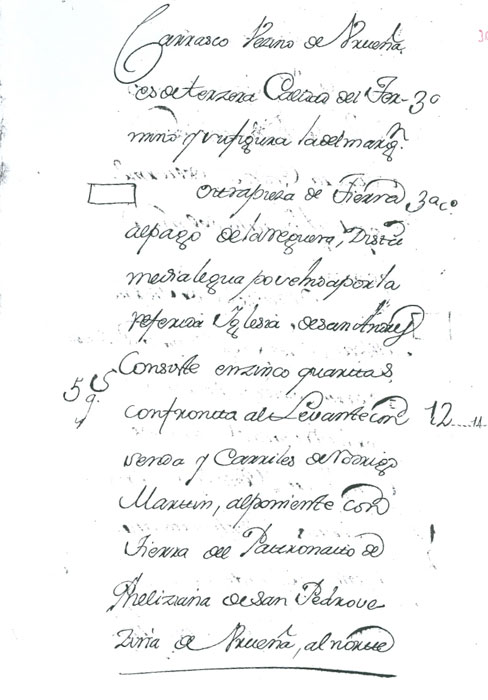 Carrasco Vezino de Vrueña
es de terzera Calidad del Ter- 3ª
mino y su figura la del margn.
otra pieza de Tierra 3a co
al pago de la reguera, Dista
media legua poseensa por la
referida Yglesia de san Andres
Consiste en zinco quartas 5 q.
confronta al Levante con 12
senda y Carriles de Rodrigo
Martin, al poniente con
Tierra del Patronato de
Pheliziana de san Pedro ve
zina de Vrueña, al norte